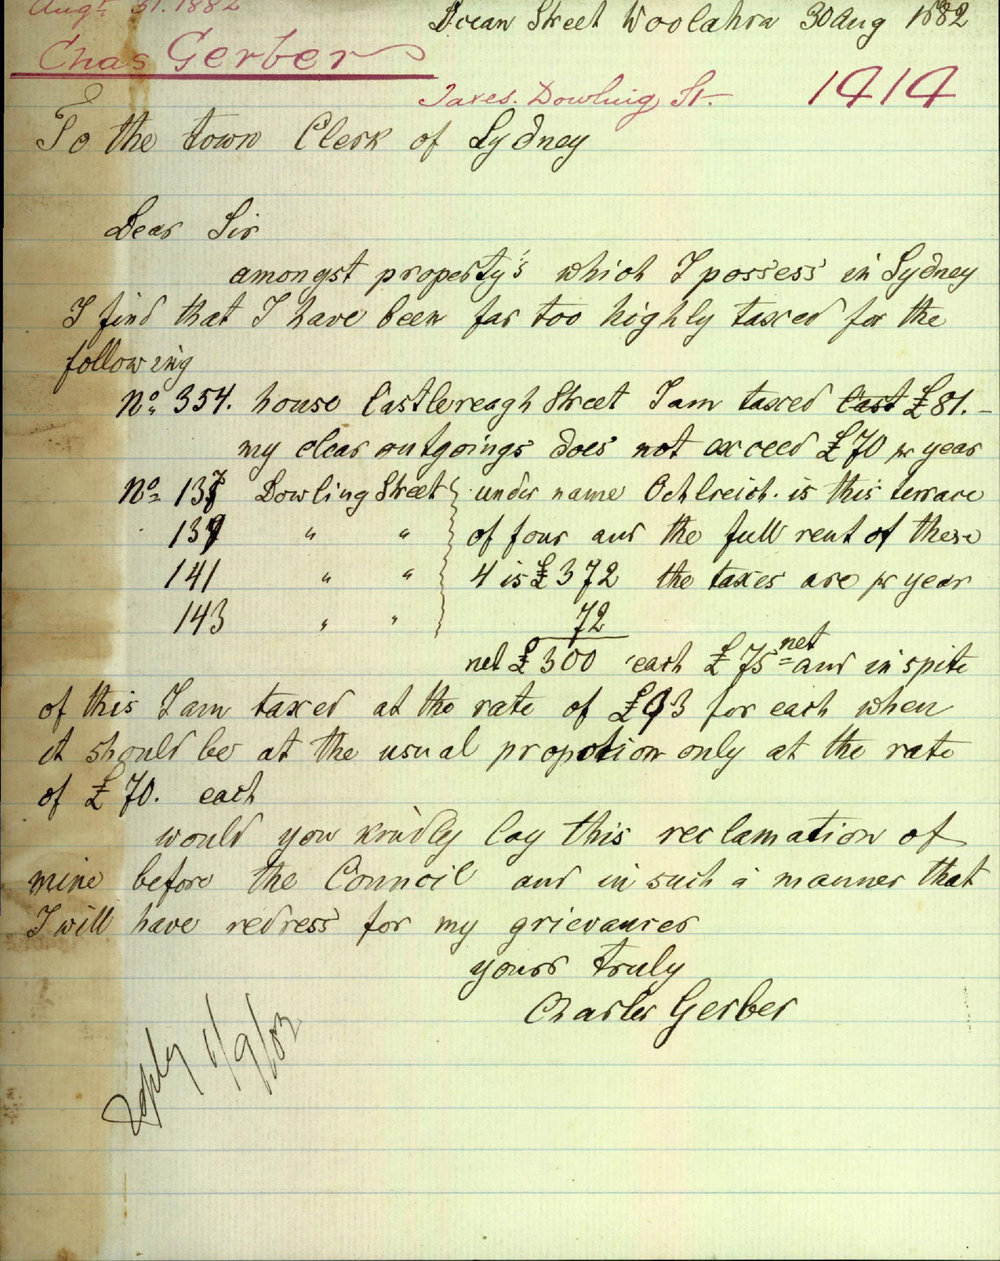 Augt 31. 1882
Ocean Street Woolahra 30 Aug 1882
Chas Gerber
Taxes. Dowling St.
1414
To the town Clerk of Sydney
Dear Sir
amongst property's which I possess in Sydney
I find that I have been far too highly taxed for the
following
No. 354. house Castlereagh Street I am taxed last £81.-
my clear outgoings does not exceed £70 pr year
No 137 Dowling Street under name Ochlreich. is this terrace
139 " " of four and the full rent of these
141 " " 4 is £372 the taxes are pr year
143 " " 72
net £300 each £75 net and in spite
of this I am taxed at the rate of £93 for each when
it should be at the usual propotion only at the rate
of £70. each
would you kindly lay this reclamation of
mine before the Council and in such a manner that
I will have redress for my grievances
yours truly
Charles Gerber
Reply 1/9/82